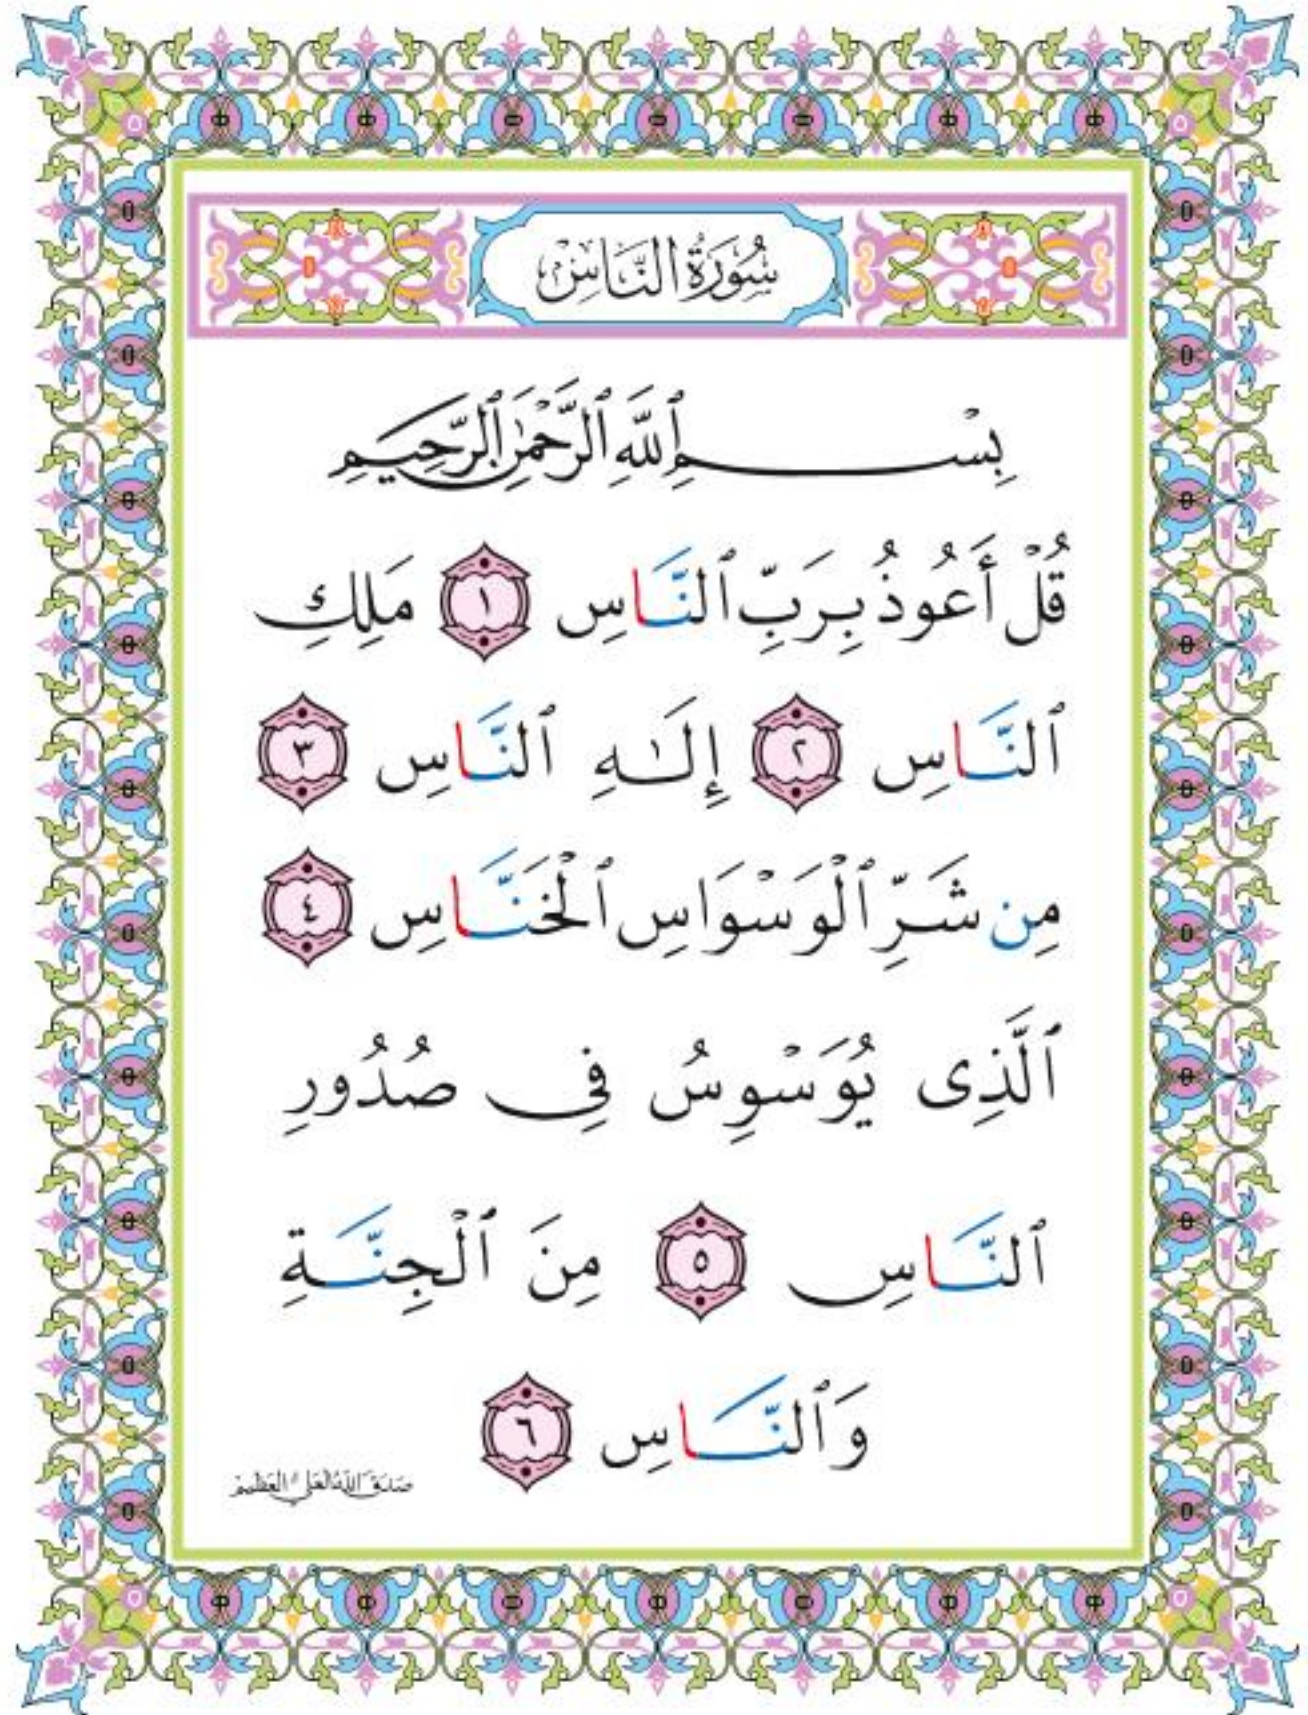 سُورَةُ النَّاسِ
بِسْمِ ٱللَّهِ ٱلرَّحْمَٰنِ ٱلرَّحِيمِ
قُلْ أَعُوذُ بِرَبِّ ٱلنَّاسِ ١ مَلِكِ
ٱلنَّاسِ ٢ إِلَٰهِ ٱلنَّاسِ ٣
مِن شَرِّ ٱلْوَسْوَاسِ ٱلْخَنَّاسِ ٤
ٱلَّذِى يُوَسْوِسُ فِى صُدُورِ
ٱلنَّاسِ ٥ مِنَ ٱلْجِنَّةِ
وَٱلنَّاسِ ٦
صَدَقَ اللهُ العَلِيُّ العَظِيمُ